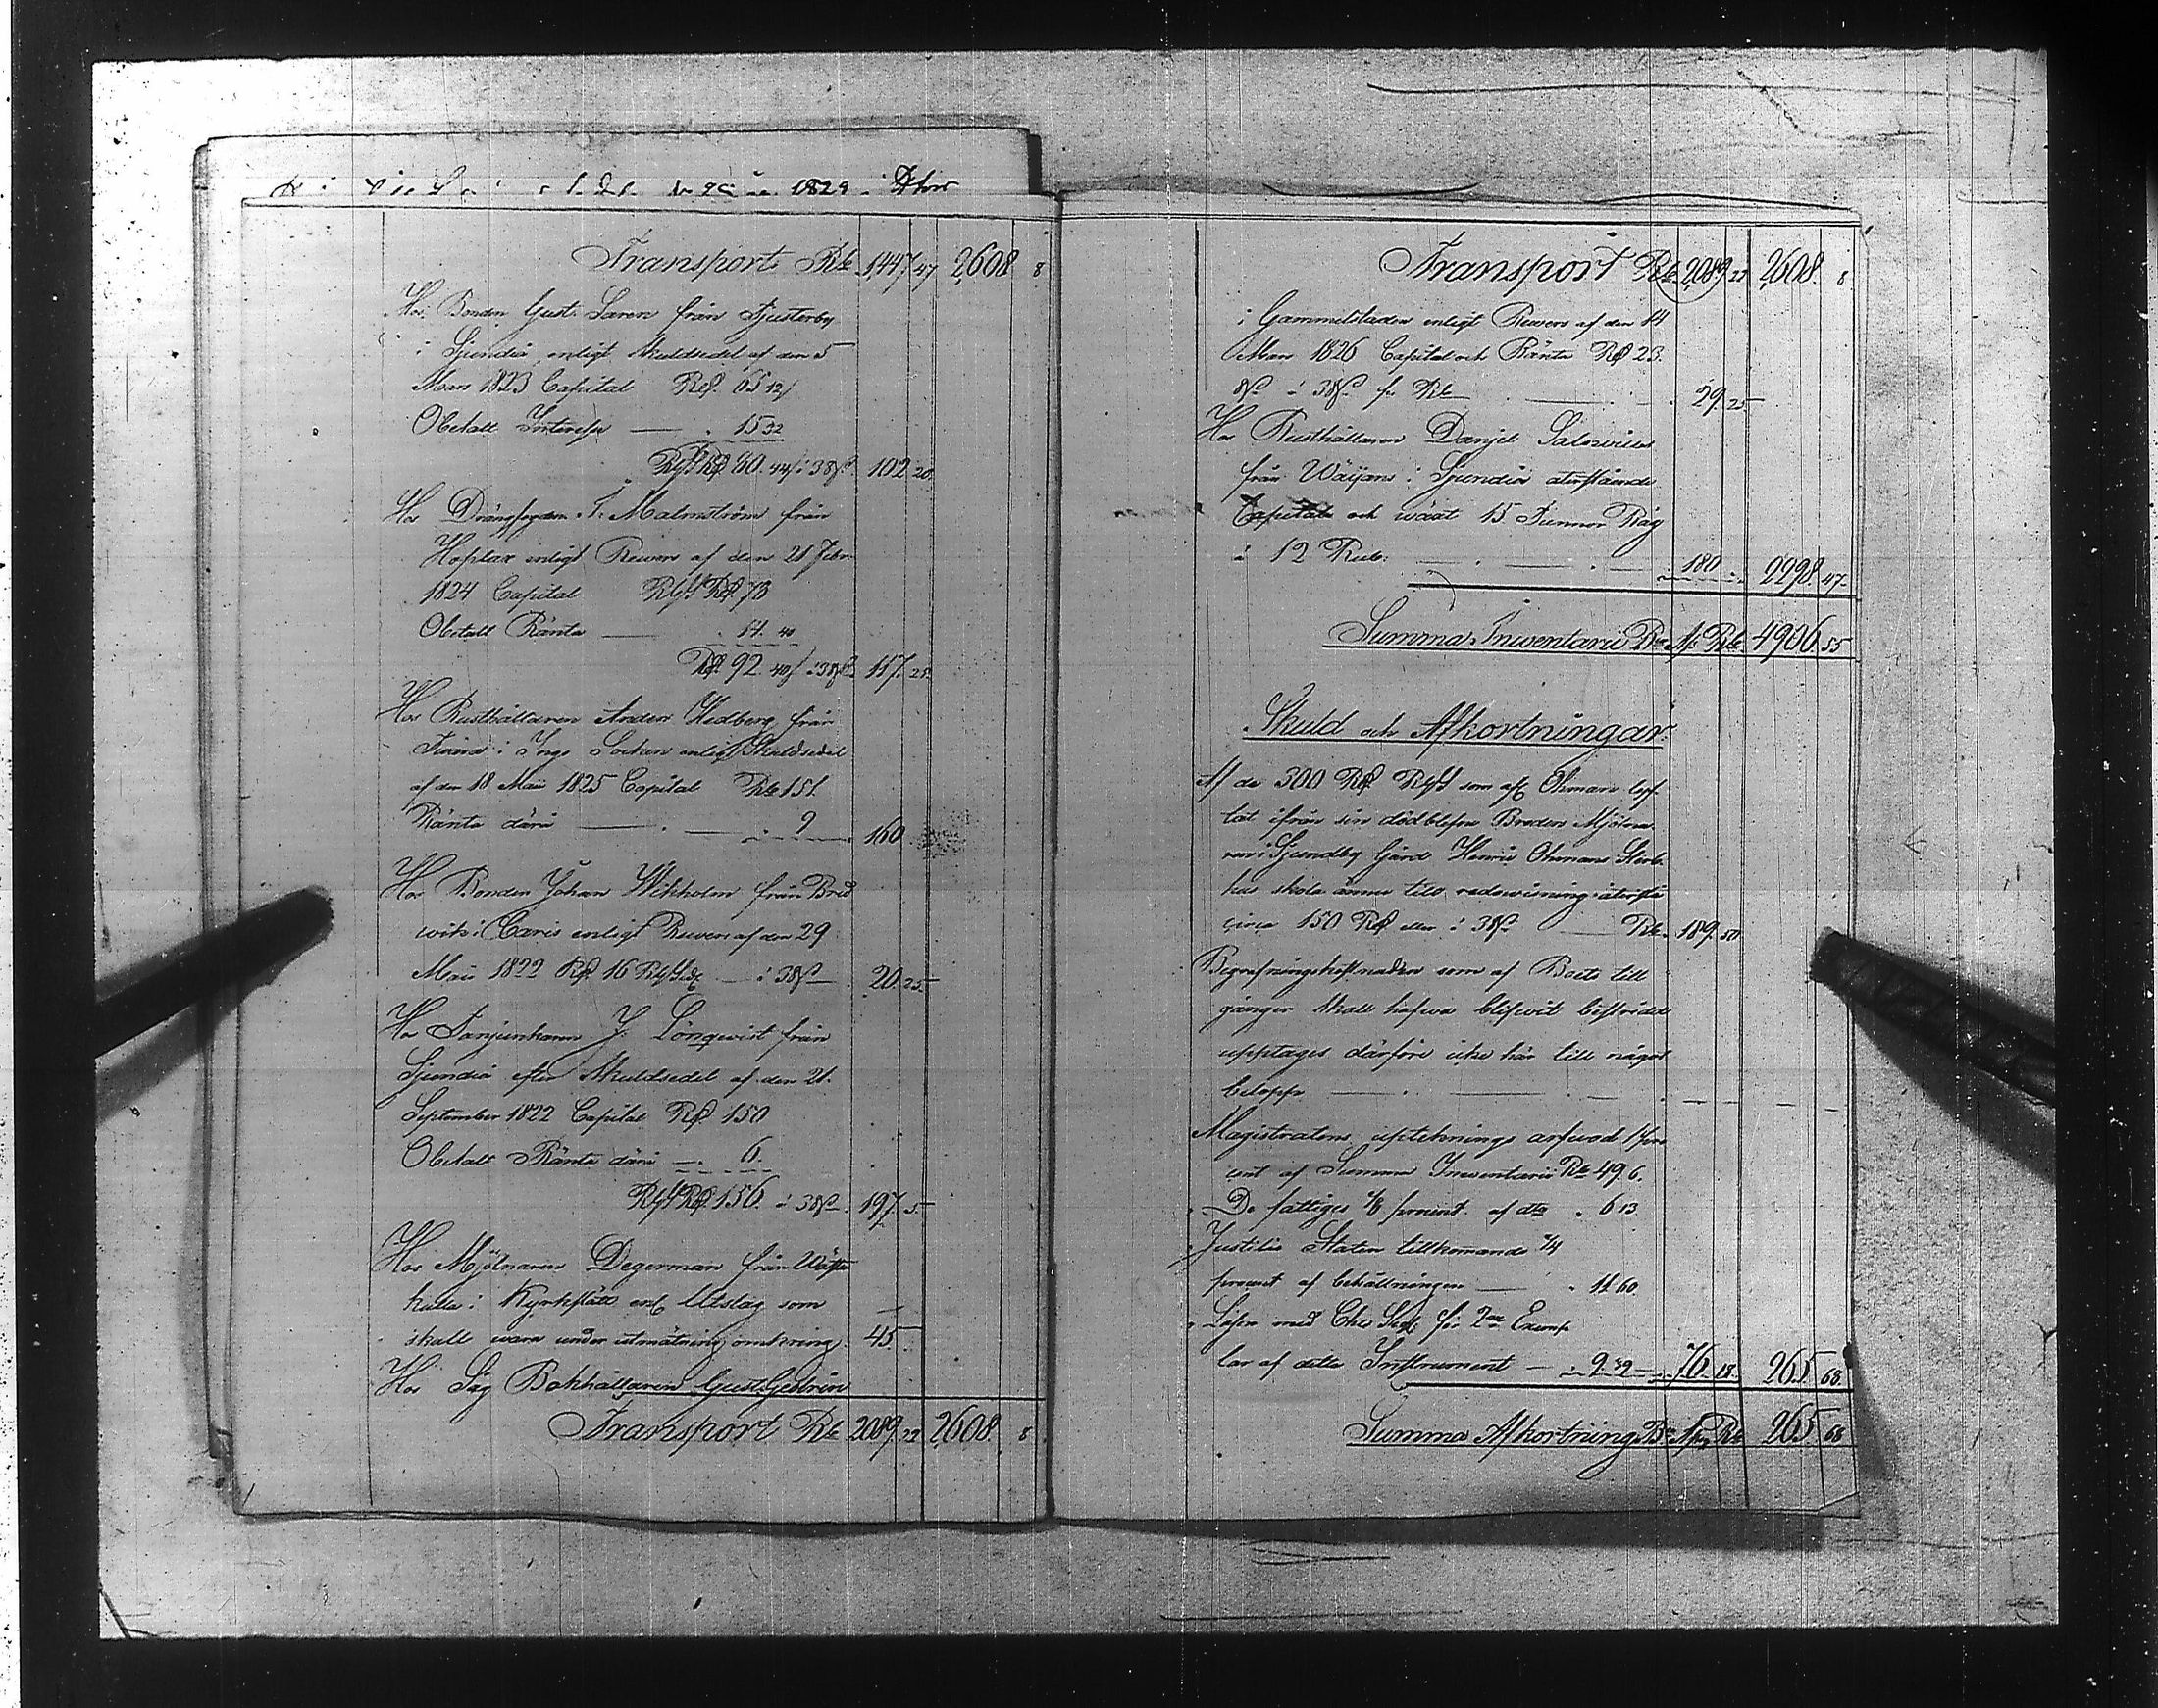 1829
Transport Rbl. 1447 47 2608 8
Hos Bonden Gust. Saren från Tjusterby
i Sjundiå enligt Skuldsedel af den 5
Mars 1823 Capital Rd. 65 12
Obetalt Interesse — 15 32
60 44 à 38 102 20
Hos Drängfogden J. Malmström från
Hoplax enligt Revers af den 21 Febr.
1824 Capital 78
Obetalt Ränta — 14 40
92 40 à 38 117 25
Hos Rusthållaren Anders Hedberg från
i Ingo Socken enligt Skuldsedel
af den 18 Maii 1825 Capital Rbl 151.
Ränta därå — 9 160
Hos Bonden Johan Wikholm från Bred
wik i Caris enligt Revers af den 29
Maii 1822 16 à 38 20 25
Hos J. Lönqwist från
Sjundiå efter Skuldsedel af den 21.
September 1822 Capital 150
Obetalt Ränta därå — 6.
156. à 38 197 5
Hos Mjölnaren Degerman från
kulla i Kyrkslätt enl. Utslag som
skall wara under utmätning omkring 45
Hos Säg Bokhållaren Gust.
Transport Rbl 2089 22 2608 8
Transport Rbl 2089 22 2608. 8
i Gammelstaden enligt Revers af den 14
Mars 1826 Capital och Ränta 23.
à 38 Rbl 29 25
Hos Rusthållaren Danjel
från Wäijans i Sjundiå återstående
Capital och wäxt 15 Tunnor Råg
à 12 Rub. 180 2298 47
Summa Inwentarii Rbl 4906 55
Skuld och Afkortningar
Af de 300 som afl. Öhman
tat ifrån sin dödblefne Broder Mjölna
ren i Sjundby Gård Henric Öhmans Sterb
hus skola ännu till redowisning återstå
circa 150 eller à 38 Rbl. 189 50
Begrafningskostnaden som af Boets till
gångar skall hafwa blifwit bestridd
upptages därföre icke här till något
belopp
Magistratens upteknings arfwod 1 pro
cent af Summa Inwentarii Rbl 49 6.
De fattiges 1/8 procent af dito 6 13
Justitiæ Staten tillkommande 1/4
procent af behållningen — 11 60
Lösen med Chs Sig. för 2ne Exemp
lar af detta Instrument — 9 39 76 18. 265 68
Summa Afkortning 265 68